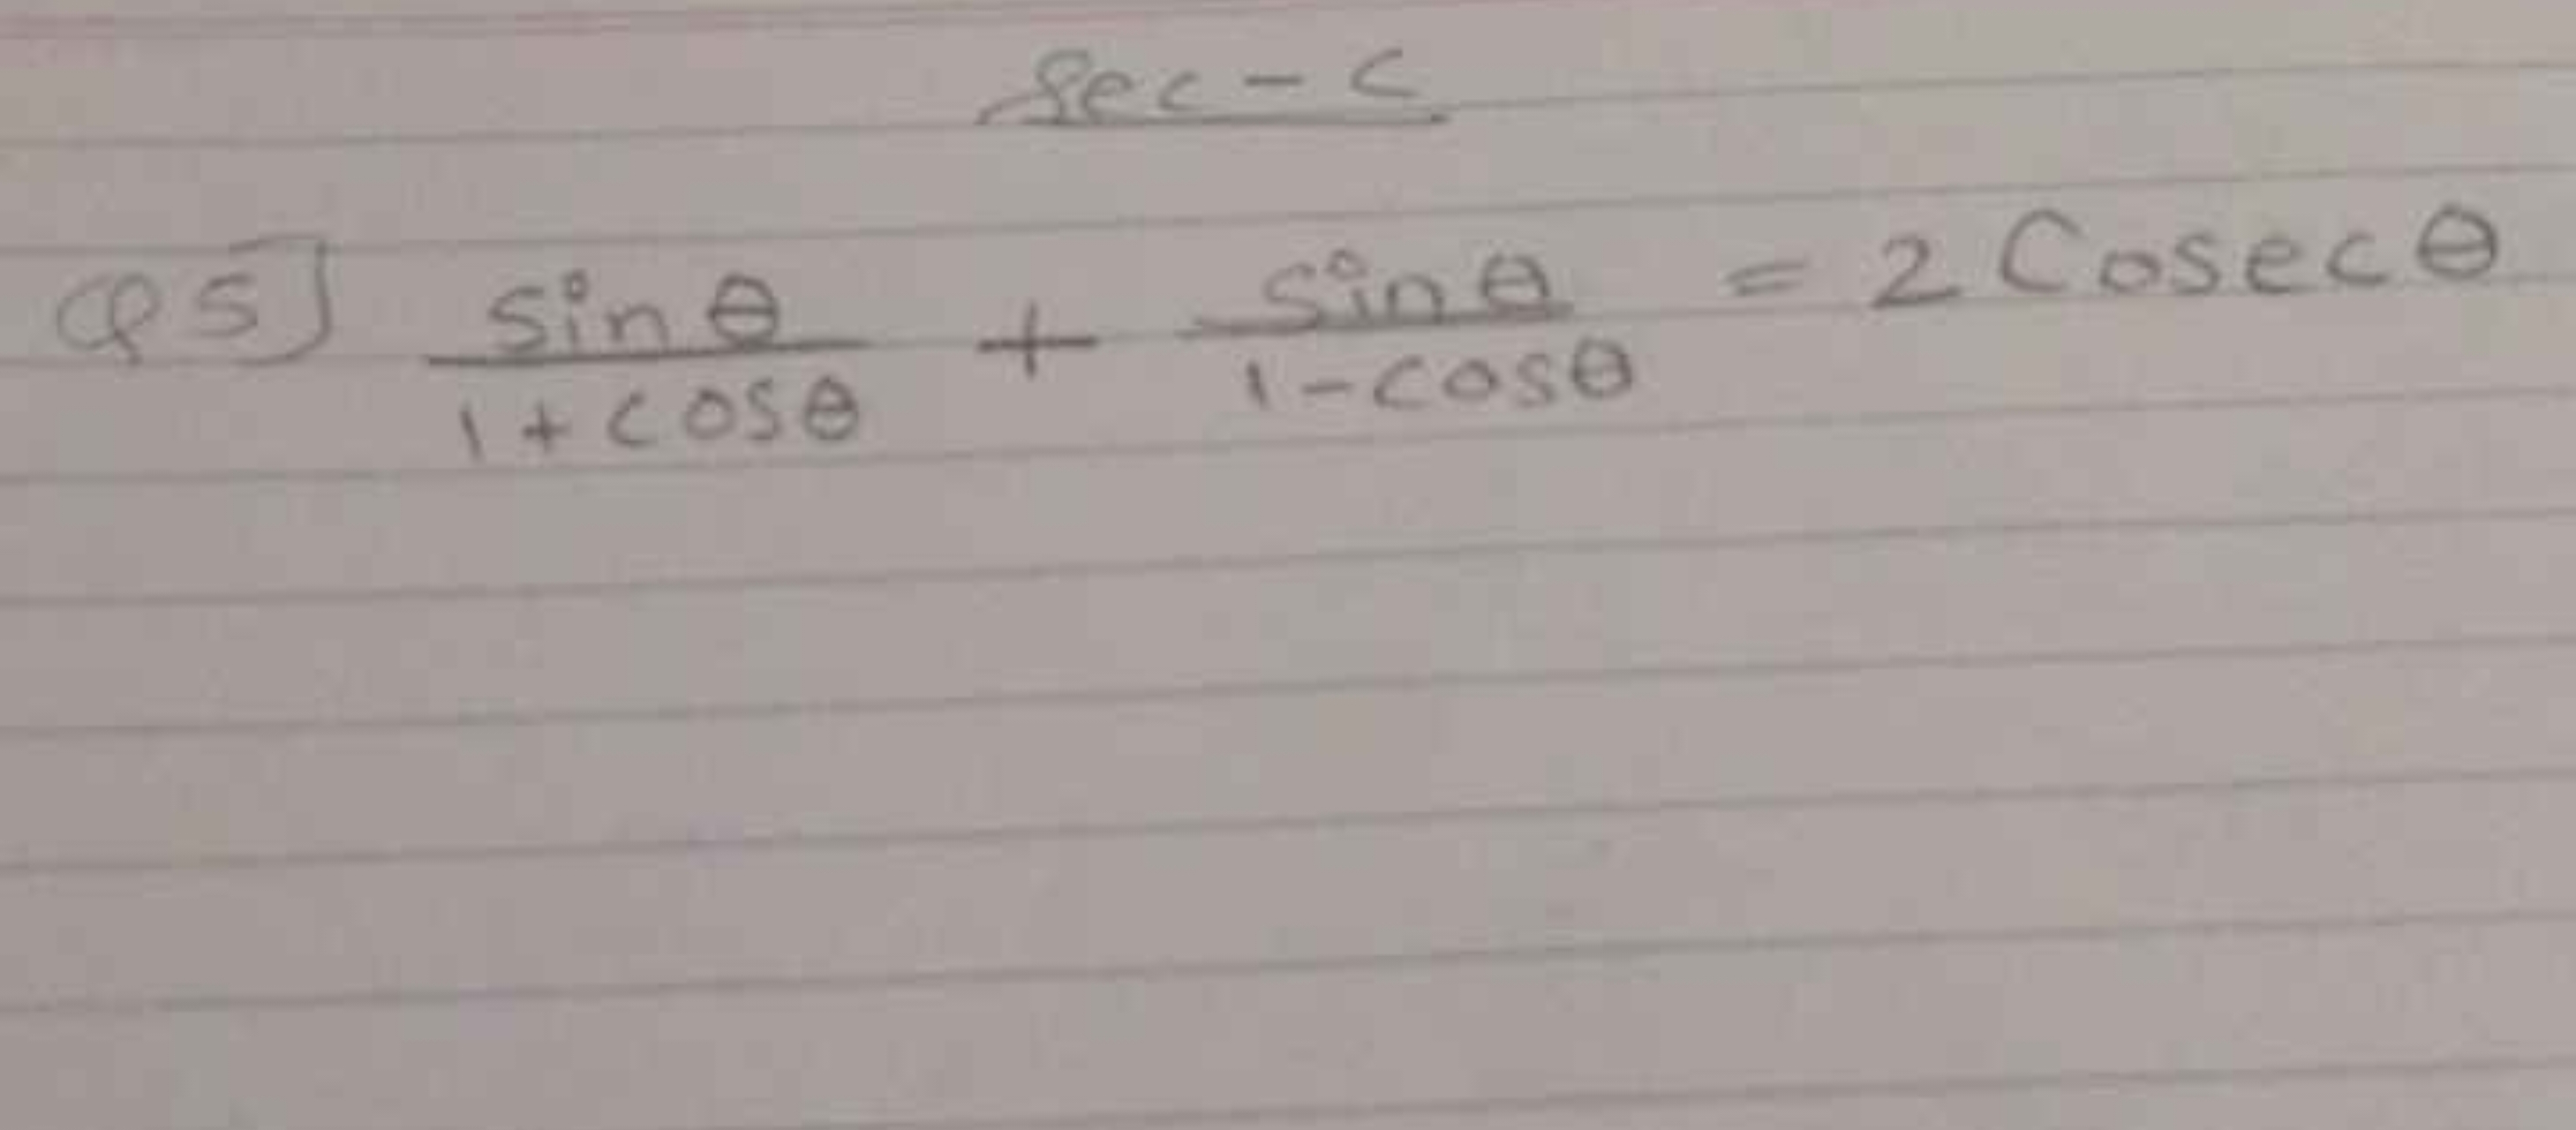 Sec - C
Q5] sinθ / 1 + cosθ + sinθ / 1 - cosθ = 2 Cosecθ